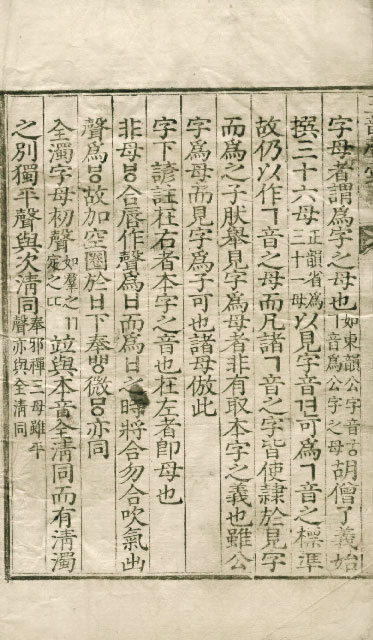 字母者謂爲字之母也如東韻公字音공ㄱ音爲公字之母胡僧了義始
撰三十六母正韻省爲三十一母以見字音견可爲ㄱ音之標準
故仍以作ㄱ音之母而凡諸ㄱ音之字皆使隷於見字
而爲之子肰擧見字爲母者非有取本字之義也雖公
字爲母而見字爲子可也諸母倣此
字下諺註在右者本字之音也在左者卽母也
非母ㅸ合唇作聲爲ㅂ而爲ㅂ之時將合勿合吹氣出
聲爲ㅸ故加空圈於ㅂ下奉ㅹ微ㅱ亦同
全濁字母初聲如羣之ㄲ定之ㄸ並與本音全淸同而有淸濁
之別獨平聲與次淸同奉邪禪三母雖平聲亦與全淸同